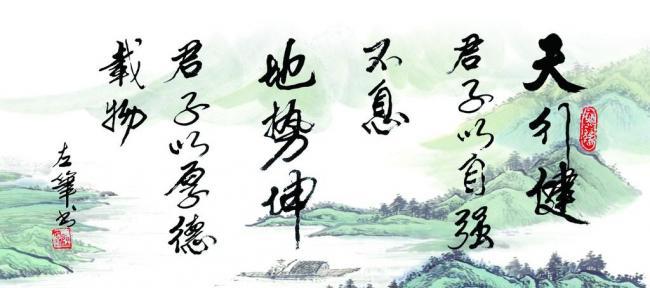 天行健
君子以自强
不息
地势坤
君子以厚德
载物
左笔书